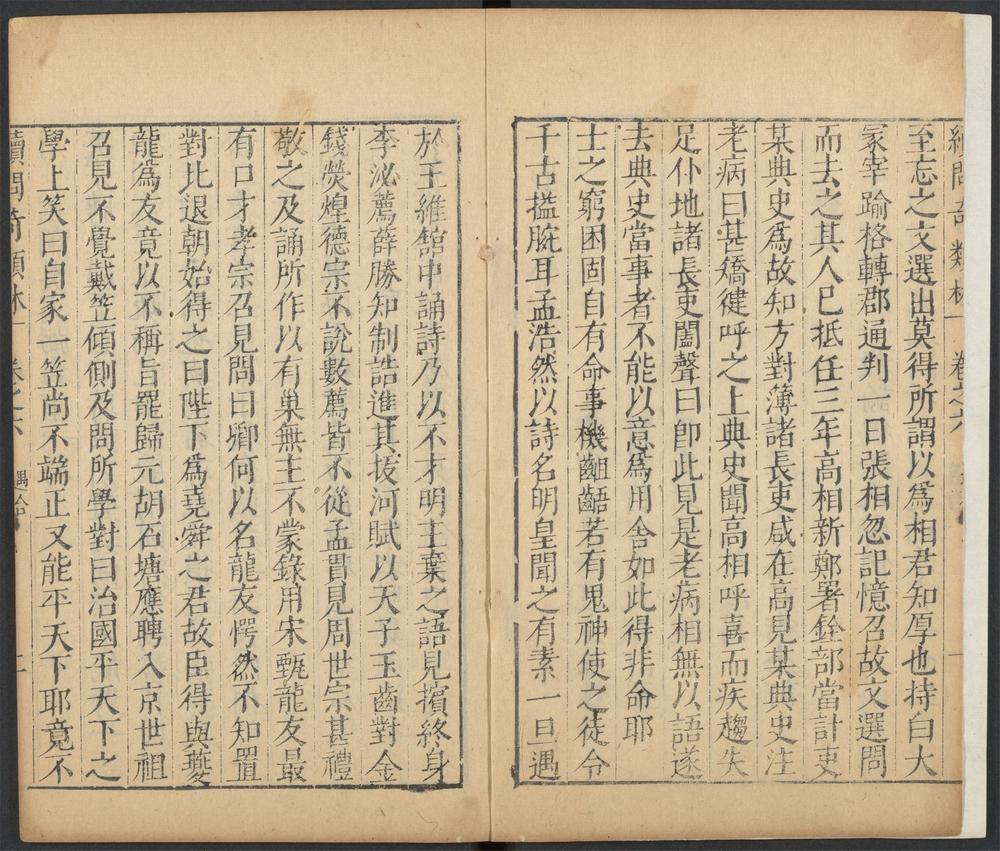 續問奇類林 卷之六
至忘之文選出莫得所謂以爲相君知厚也持白大
冢宰踰格轉郡通判一日張相忽記憶召故文選問
而去之其人已抵任三年高相新鄭署銓部當計吏
某典史爲故知方對簿諸長吏咸在高見某典史注
老病曰甚矯健呼之上典史聞高相呼喜而疾趨失
足仆地諸長吏闔聲曰卽此見是老病相無以語遂
去典史當事者不能以意爲用舍如此得非命耶
士之窮困固自有命事機齟齬若有鬼神使之徒令
千古搤腕耳孟浩然以詩名明皇聞之有素一旦遇
於王維舘中誦詩乃以不才明主棄之語見擯終身
李泌薦薛勝知制誥進其拔河賦以天子玉齒對金
錢熒煌德宗不說數薦皆不從孟貫見周世宗甚禮
敬之及誦所作以有巢無主不蒙錄用宋甄龍友最
有口才孝宗召見問曰卿何以名龍友愕然不知置
對比退朝始得之曰陛下爲堯舜之君故臣得與夔
龍爲友竟以不稱旨罷歸元胡石塘應聘入京世祖
召見不覺戴笠傾側及問所學對曰治國平天下之
學上笑曰自家一笠尚不端正又能平天下耶竟不
續問奇類林 卷之六 偶合 二